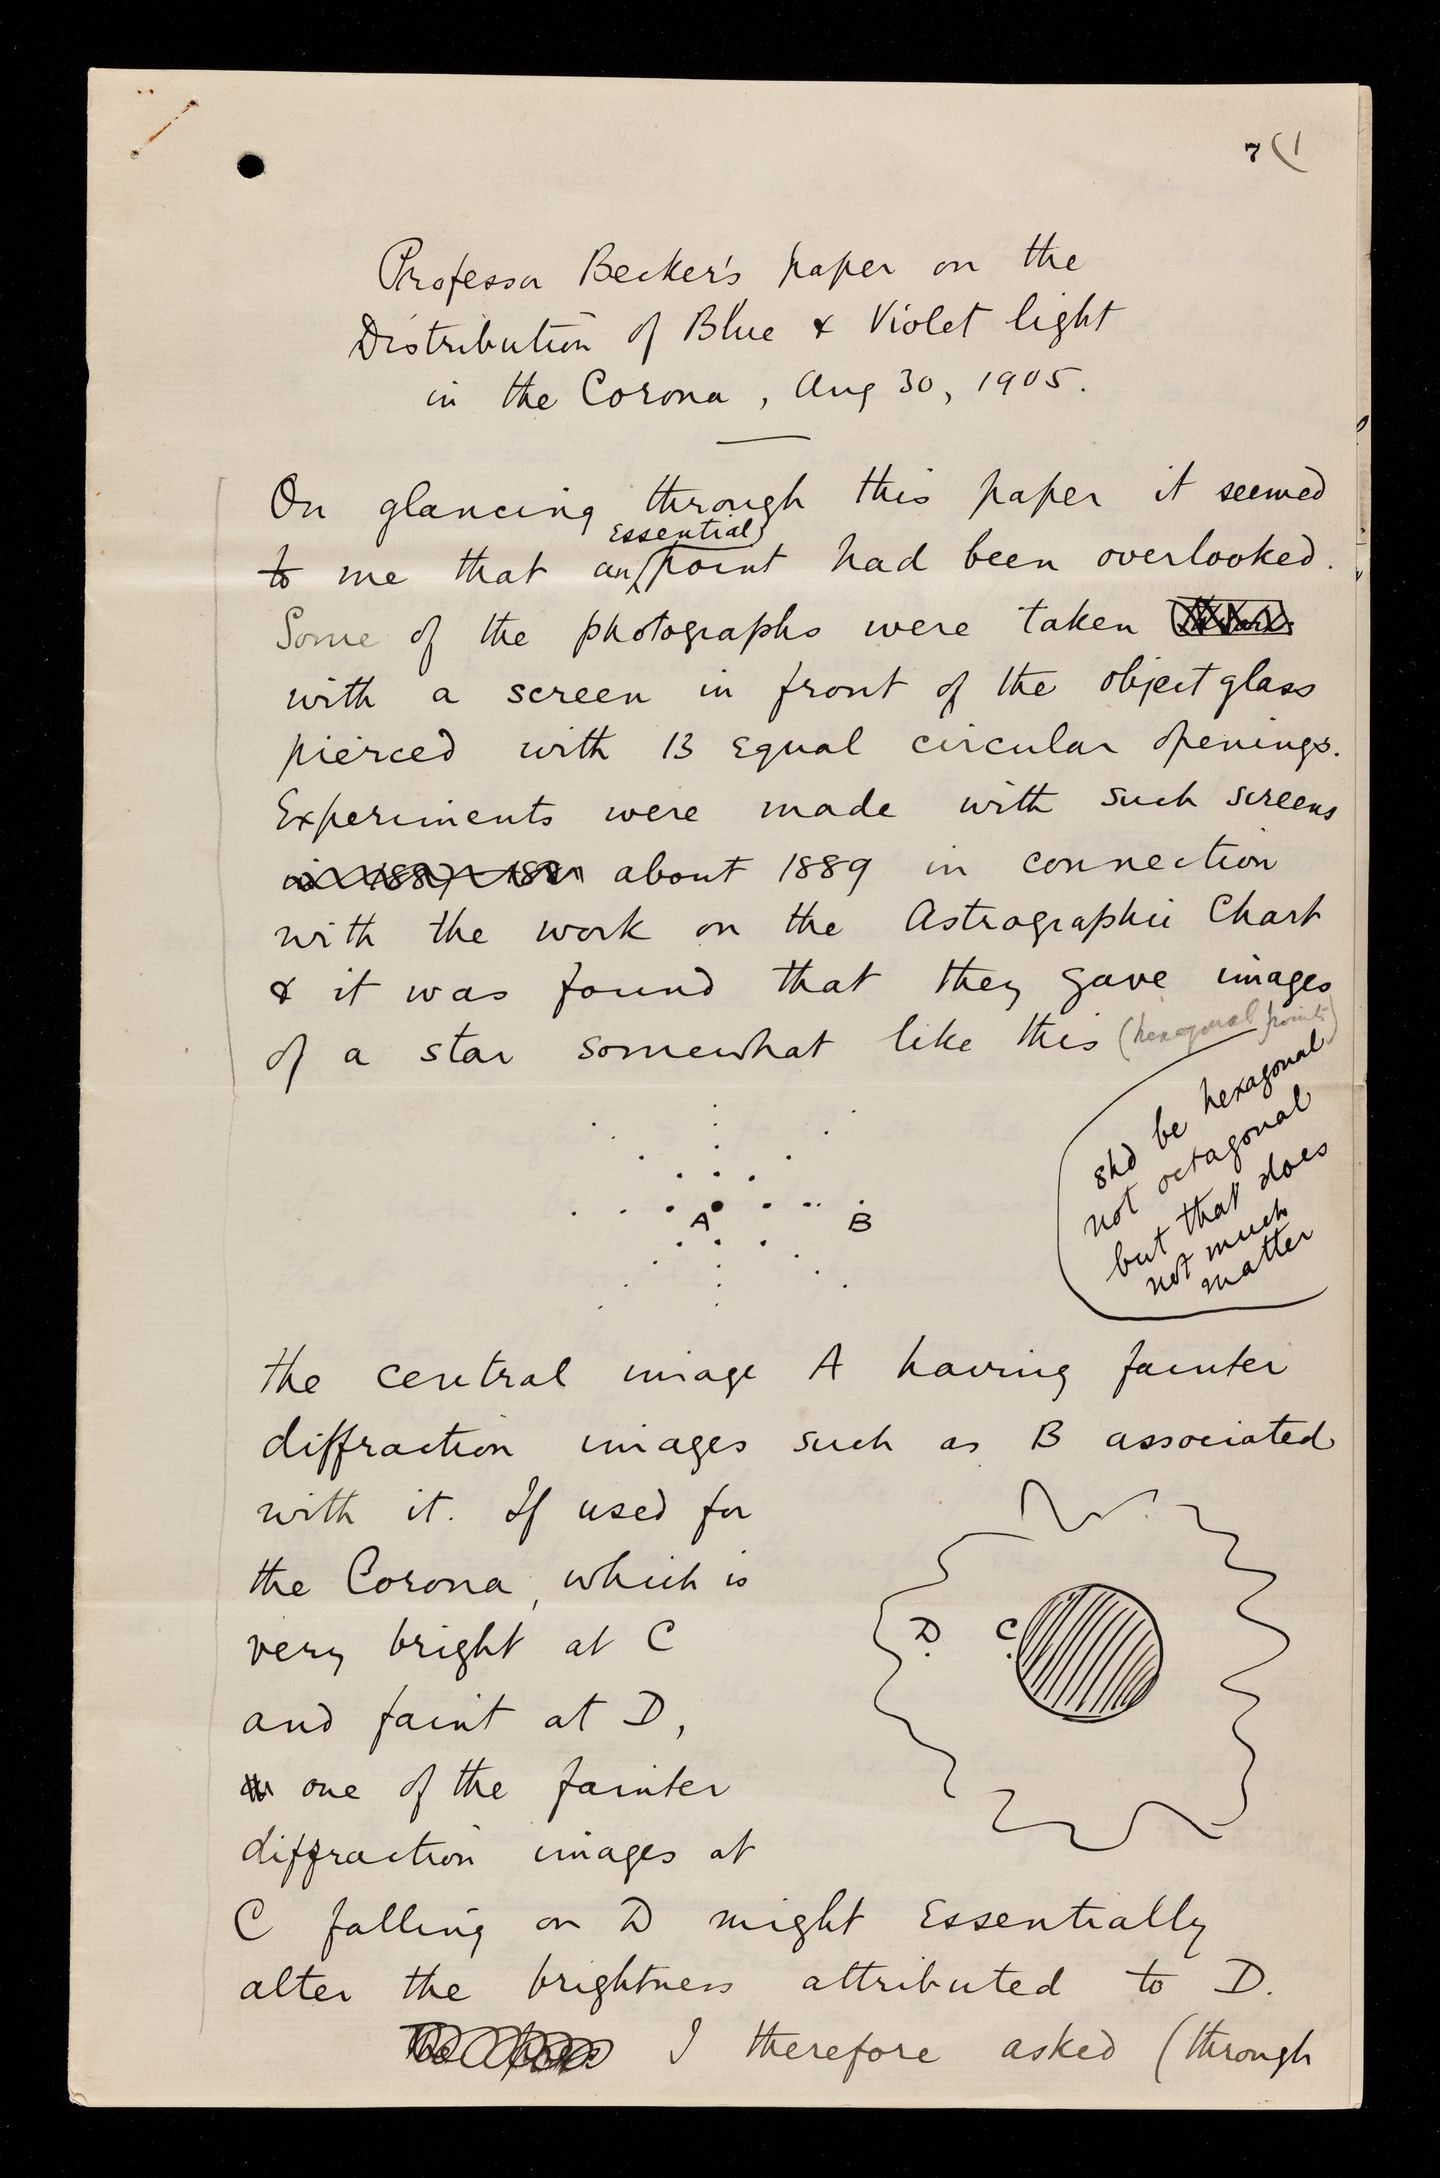 7 (1
Professor Becker's paper on the
Distribution of Blue & Violet light
in the Corona, Aug 30, 1905.
On glancing through this paper it seemed
essential
to me that an point had been overlooked.
Some of the photographs were taken
with a screen in front of the object glass
pierced with 13 equal circular openings.
Experiments were made with such screens
about 1889 in connection
with the work on the Astrographic Chart
& it was found that they gave images
of a star somewhat like this (hexagonal points)
shd be hexagonal
not octagonal
but that does
not much
matter
A B
the central image A having fainter
diffraction images such as B associated
with it. If used for
the Corona, which is
very bright at C
and faint at D,
D C
one of the fainter
diffraction images at
C falling on D might essentially
alter the brightness attributed to D.
I therefore asked (through